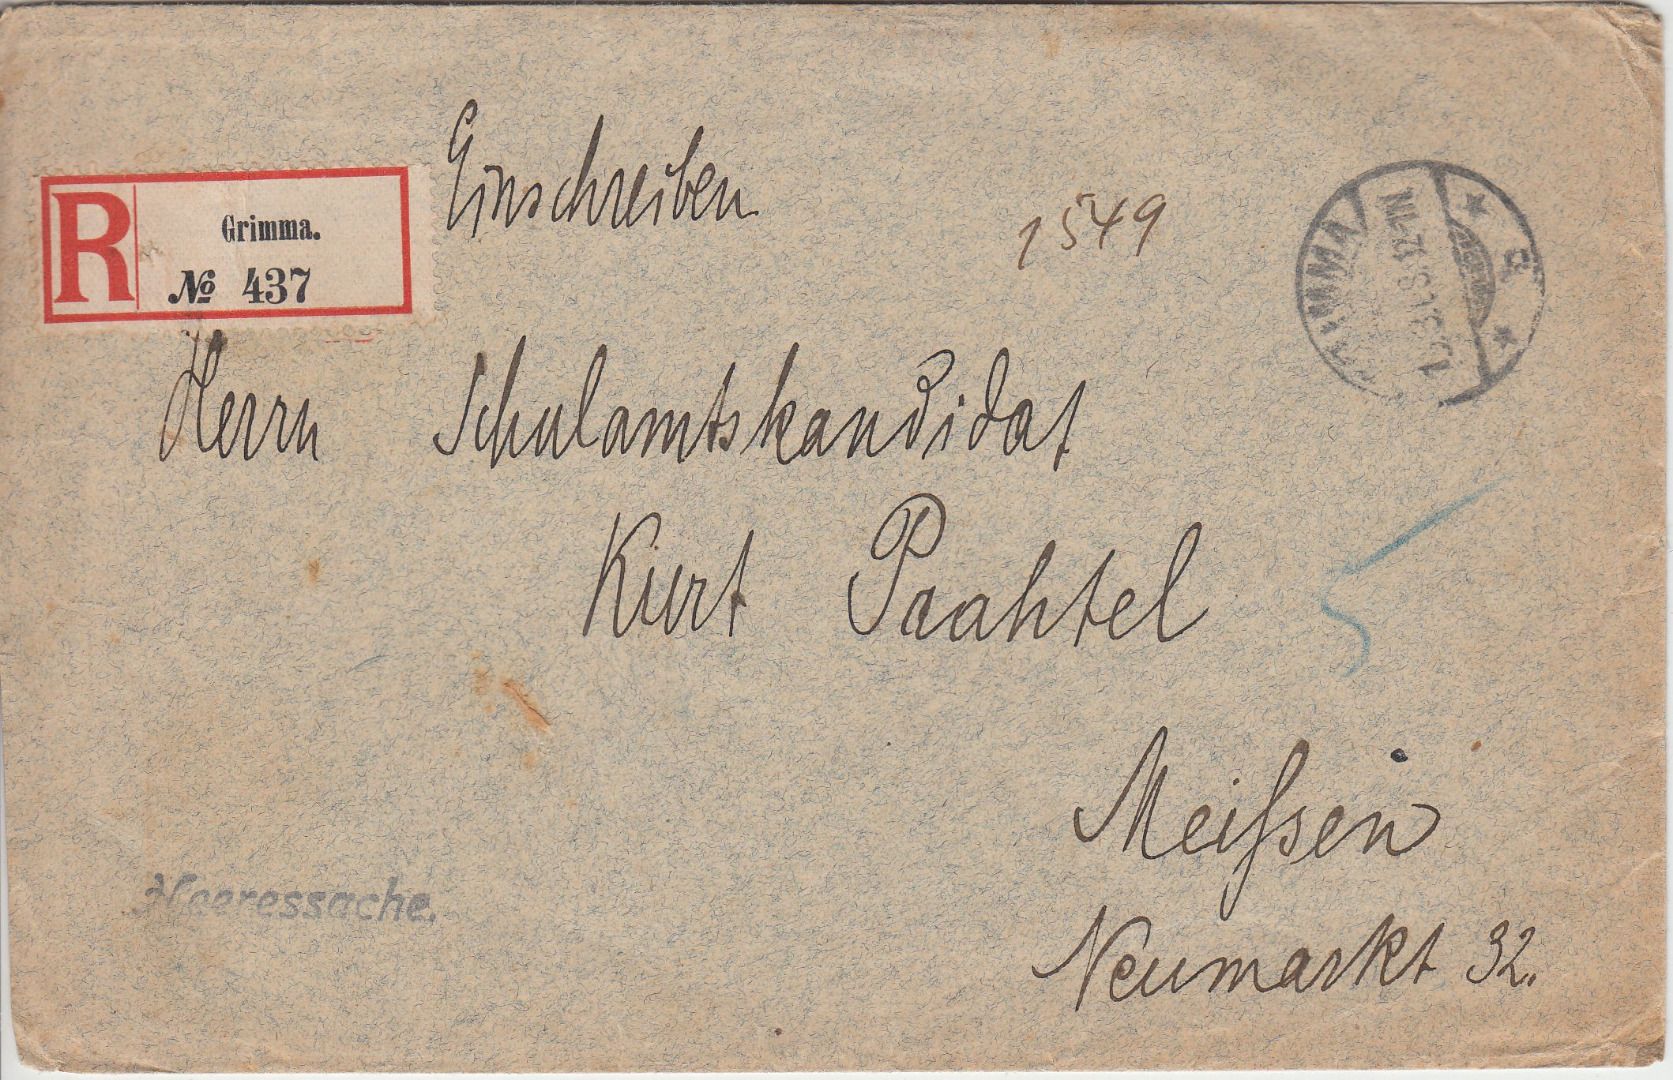 Einschreiben
R
Grimma.
№ 437
1549
GRIMMA
Herrn Schulamtskandidat
Kurt Paahtel
Meißen
Neumarkt 32.
Heeressache.